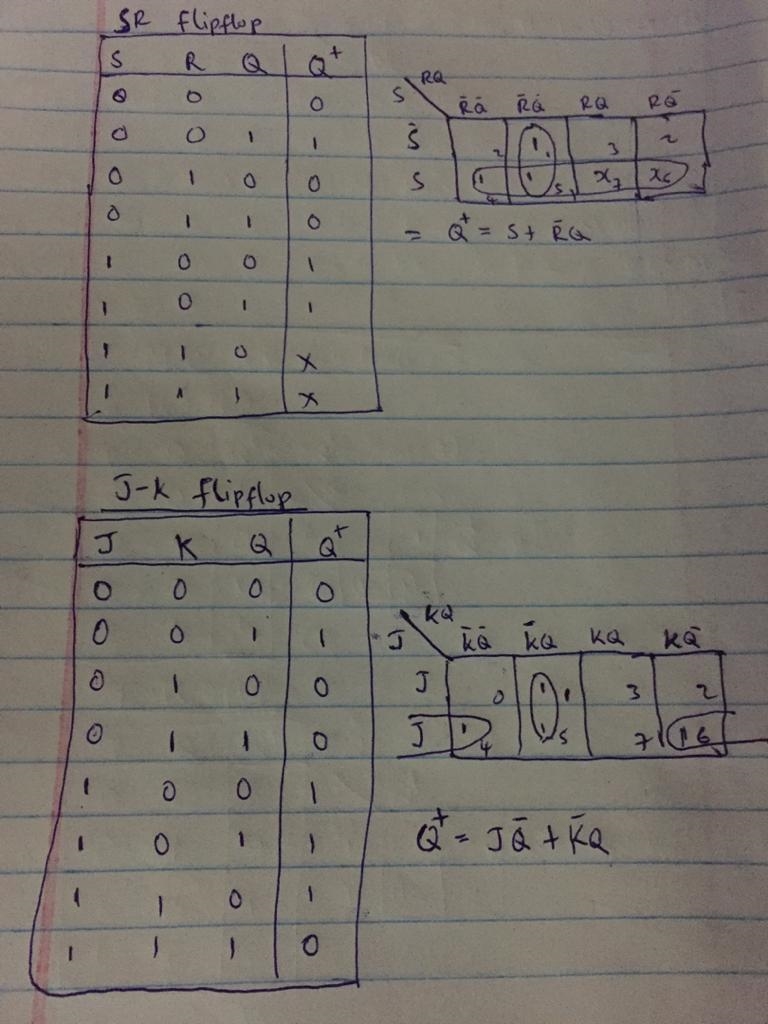 SR flipflop
S R Q Q⁺
0 0 0
0 0 1 1
0 1 0 0
0 1 1 0
1 0 0 1
1 0 1 1
1 1 0 x
1 1 1 x
S RQ
R̄Q̄ R̄Q RQ RQ̄
S̄ 2 1 1 3 2
S 1 4 1 5 x 7 x 6
= Q⁺ = S + R̄Q
J-K flipflop
J K Q Q⁺
0 0 0 0
0 0 1 1
0 1 0 0
0 1 1 0
1 0 0 1
1 0 1 1
1 1 0 1
1 1 1 0
J KQ
K̄Q̄ K̄Q KQ KQ̄
J 0 1 1 3 2
J 1 4 1 5 7 1 6
Q⁺ = JQ̄ + K̄Q